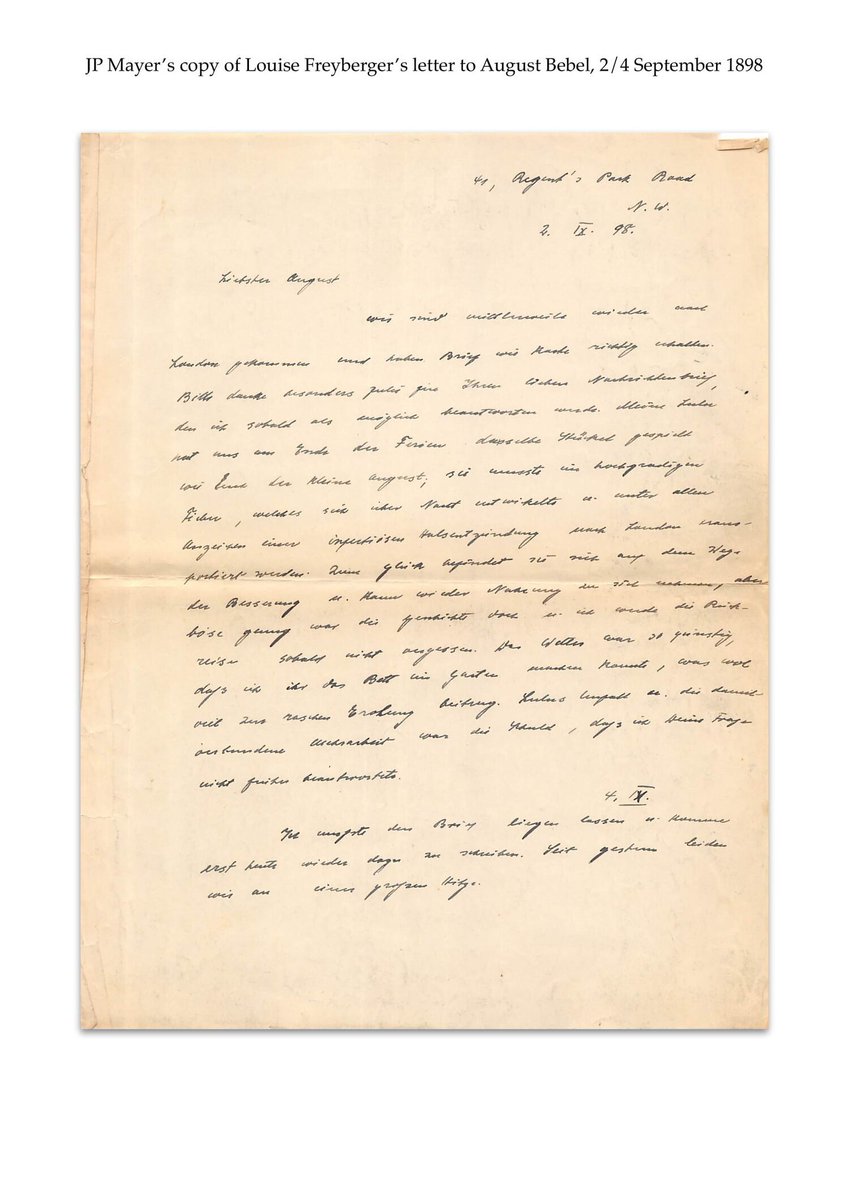 JP Mayer’s copy of Louise Freyberger’s letter to August Bebel, 2/4 September 1898
41, Regent's Park Road
N. W.
2. IX. 98.
Liebster August
wir sind mittlerweile wieder nach
London gekommen und haben Brief wie Karte richtig erhalten.
Bitte danke besonders Julie für Ihren lieben Nachrichtenbrief,
den ich sobald als möglich beantworten werde. Meine Lulu
hat uns am Ende der Ferien dasselbe Stückel gespielt
wie Euch der kleine August; sie musste im hochgradigen
Fieber, welches sich über Nacht entwickelte u. unter allen
Anzeichen einer infectiösen Halsentzündung nach London trans-
portiert werden. Zum Glück befindet sie sich auf dem Wege
der Besserung u. kann wieder Nahrung zu sich nehmen, aber
böse genug war die Geschichte doch u. ich werde die Rück-
reise sobald nicht vergessen. Das Wetter war so günstig,
daß ich ihr das Bett im Garten machen konnte, was wol
viel zur raschen Erholung beitrug. Lulus Unfall u. die damit
verbundene Mehrarbeit war die Schuld, daß ich Deine Frage
nicht früher beantwortete.
4. IX.
Ich mußte den Brief liegen lassen u. komme
erst heute wieder dazu zu schreiben. Seit gestern leiden
wir an einer großen Hitze.